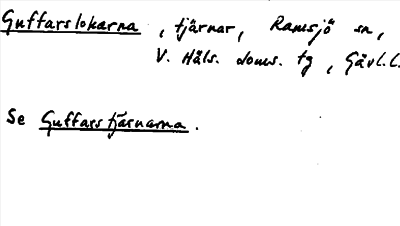 Guffarslokarna, tjärnar, Ramsjö sn,
V. Häls. doms. tg, Gävl.l.
Se Guffarstjärnarna.